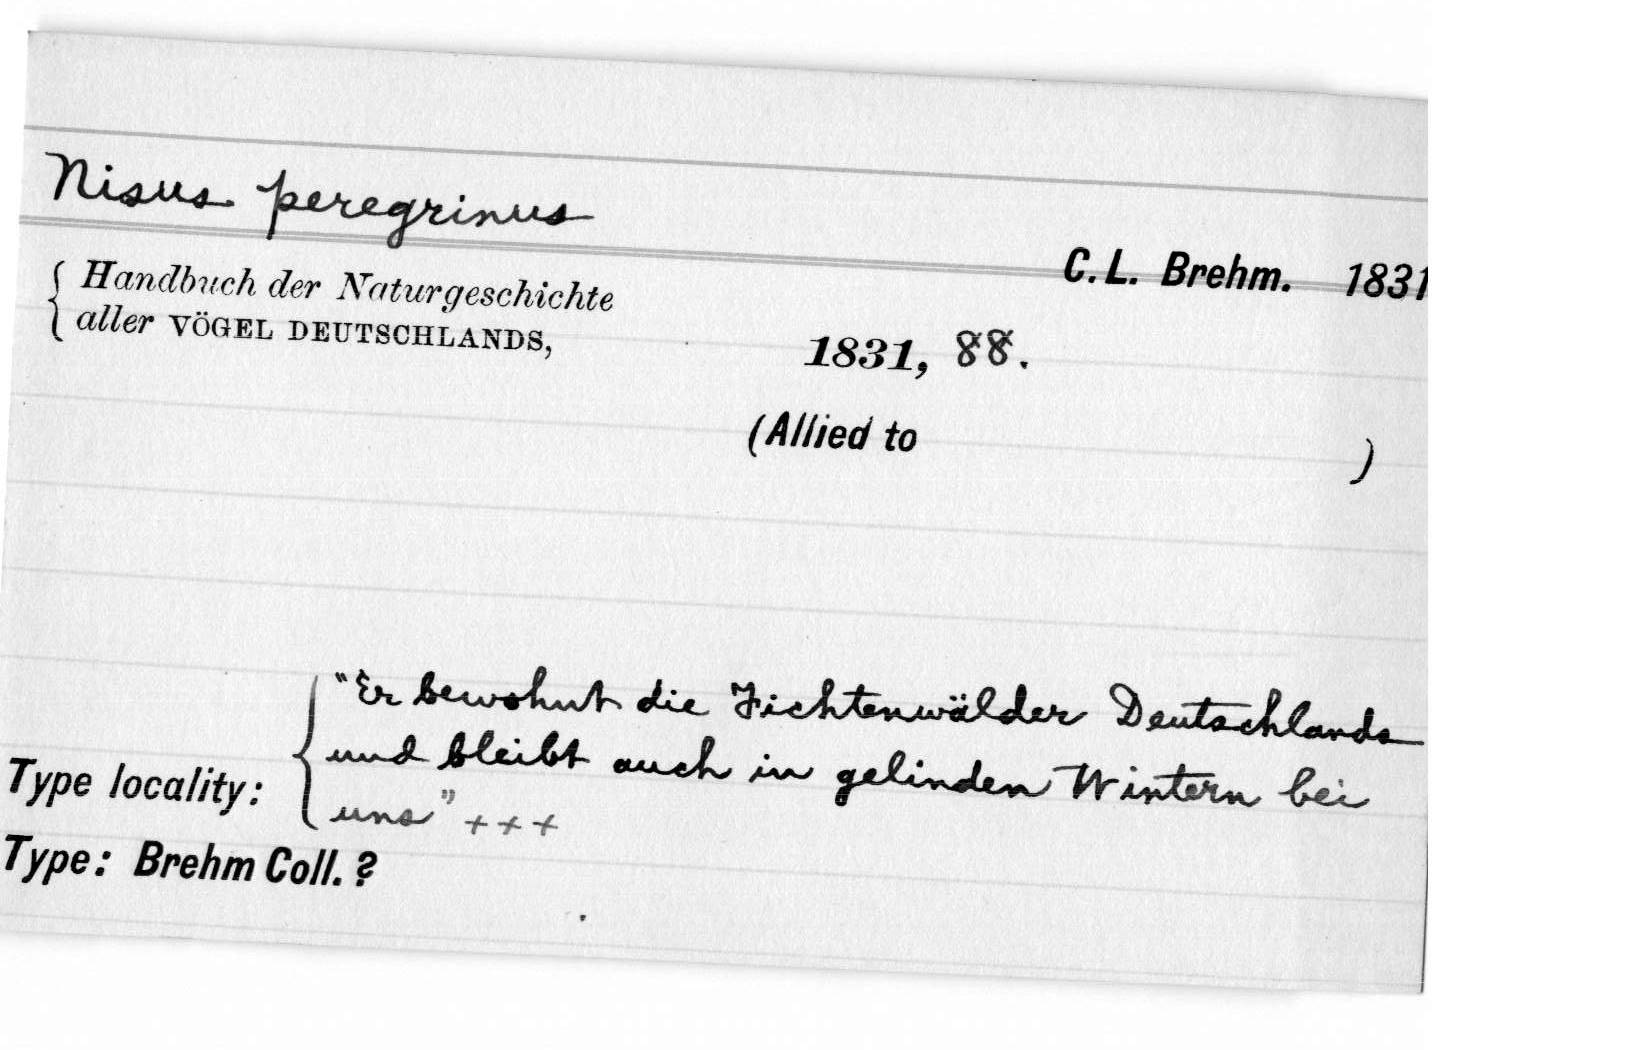 Nisus peregrinus
C.L. Brehm. 1831
Handbuch der Naturgeschichte
aller VÖGEL DEUTSCHLANDS,
1831, 88.
(Allied to )
"Er bewohnt die Fichtenwälder Deutschlands
und bleibt auch in gelinden Wintern bei
Type locality:
uns" +++
Type: Brehm Coll. ?